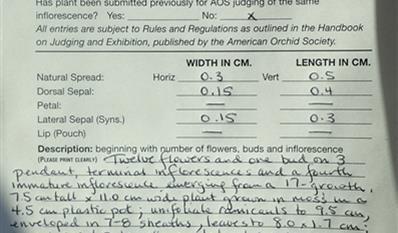 Has plant been submitted previously for AOS judging of the same
inflorescence? Yes: No: x
All entries are subject to Rules and Regulations as outlined in the Handbook
on Judging and Exhibition, published by the American Orchid Society.
WIDTH IN CM. LENGTH IN CM.
Natural Spread: Horiz 0.3 Vert 0.5
Dorsal Sepal: 0.15 0.4
Petal: — —
Lateral Sepal (Syns.) 0.15 0.3
Lip (Pouch) — —
Description: beginning with number of flowers, buds and inflorescence
(PLEASE PRINT CLEARLY) Twelve flowers and one bud on 3
pendant, terminal inflorescences and a fourth
immature inflorescence emerging from a 17-growth,
7.5 cm tall x 11.0 cm wide plant grown in moss in a
4.5 cm plastic pot; unifoliate ramicauls to 9.5 cm,
enveloped in 7-8 sheaths, leaves to 8.0 x 1.7 cm;